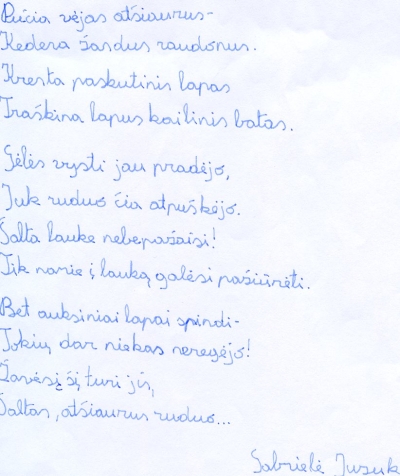 Pučia vėjas atšiaurus-
Kedena žandus raudonus.
Kresta paskutinis lapas
Traškina lapus kailinis batas.
Gėlės vysti jau pradėjo,
Juk ruduo čia atpuškėjo.
Šalta lauke nebepažaisi!
Tik narie į lauką galėsi pašiūrėti.
Bet auksiniai lapai spindi-
Tokių dar niekas neregėjo!
Žavesį šį turi jis,
Šaltas, atšiaurus ruduo...
Gabrielė